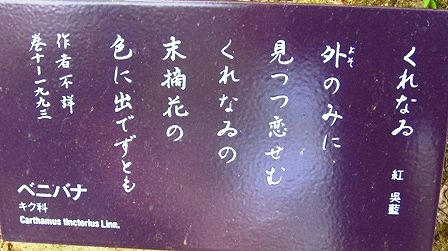 くれなゐ 紅 呉藍
外のみに
よそ
見つつ恋せむ
くれなゐの
末摘花の
色に出でずとも
作者不詳
巻十―一九九三
ベニバナ
キク科
Carthamus tinctorius Linn.